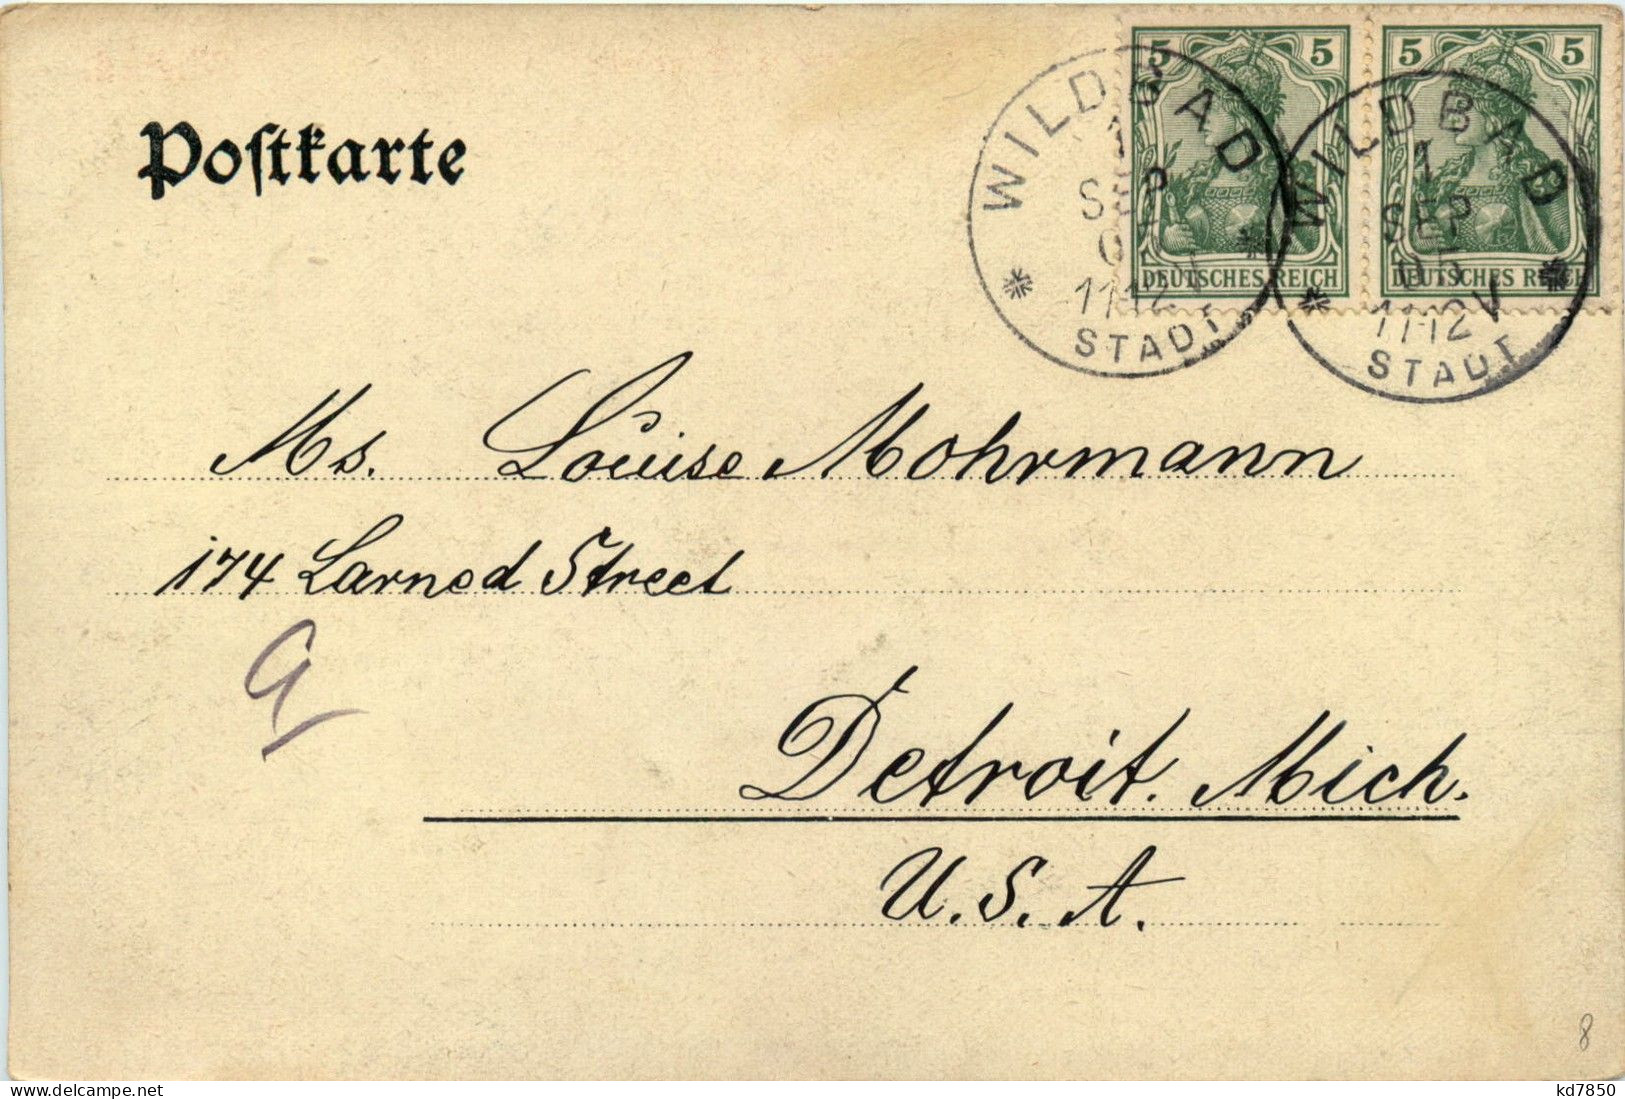 5 5 5 5
DEUTSCHES REICH DEUTSCHES REICH
WILDBAD
SEP
11-12V
STADT
WILDBAD
1
SEP
05
11-12V
STADT
Poſtkarte
Ms. Louise Mohrmann
174 Larned Street
Detroit. Mich.
U.S.A.
8
delcampe.net
kd7850